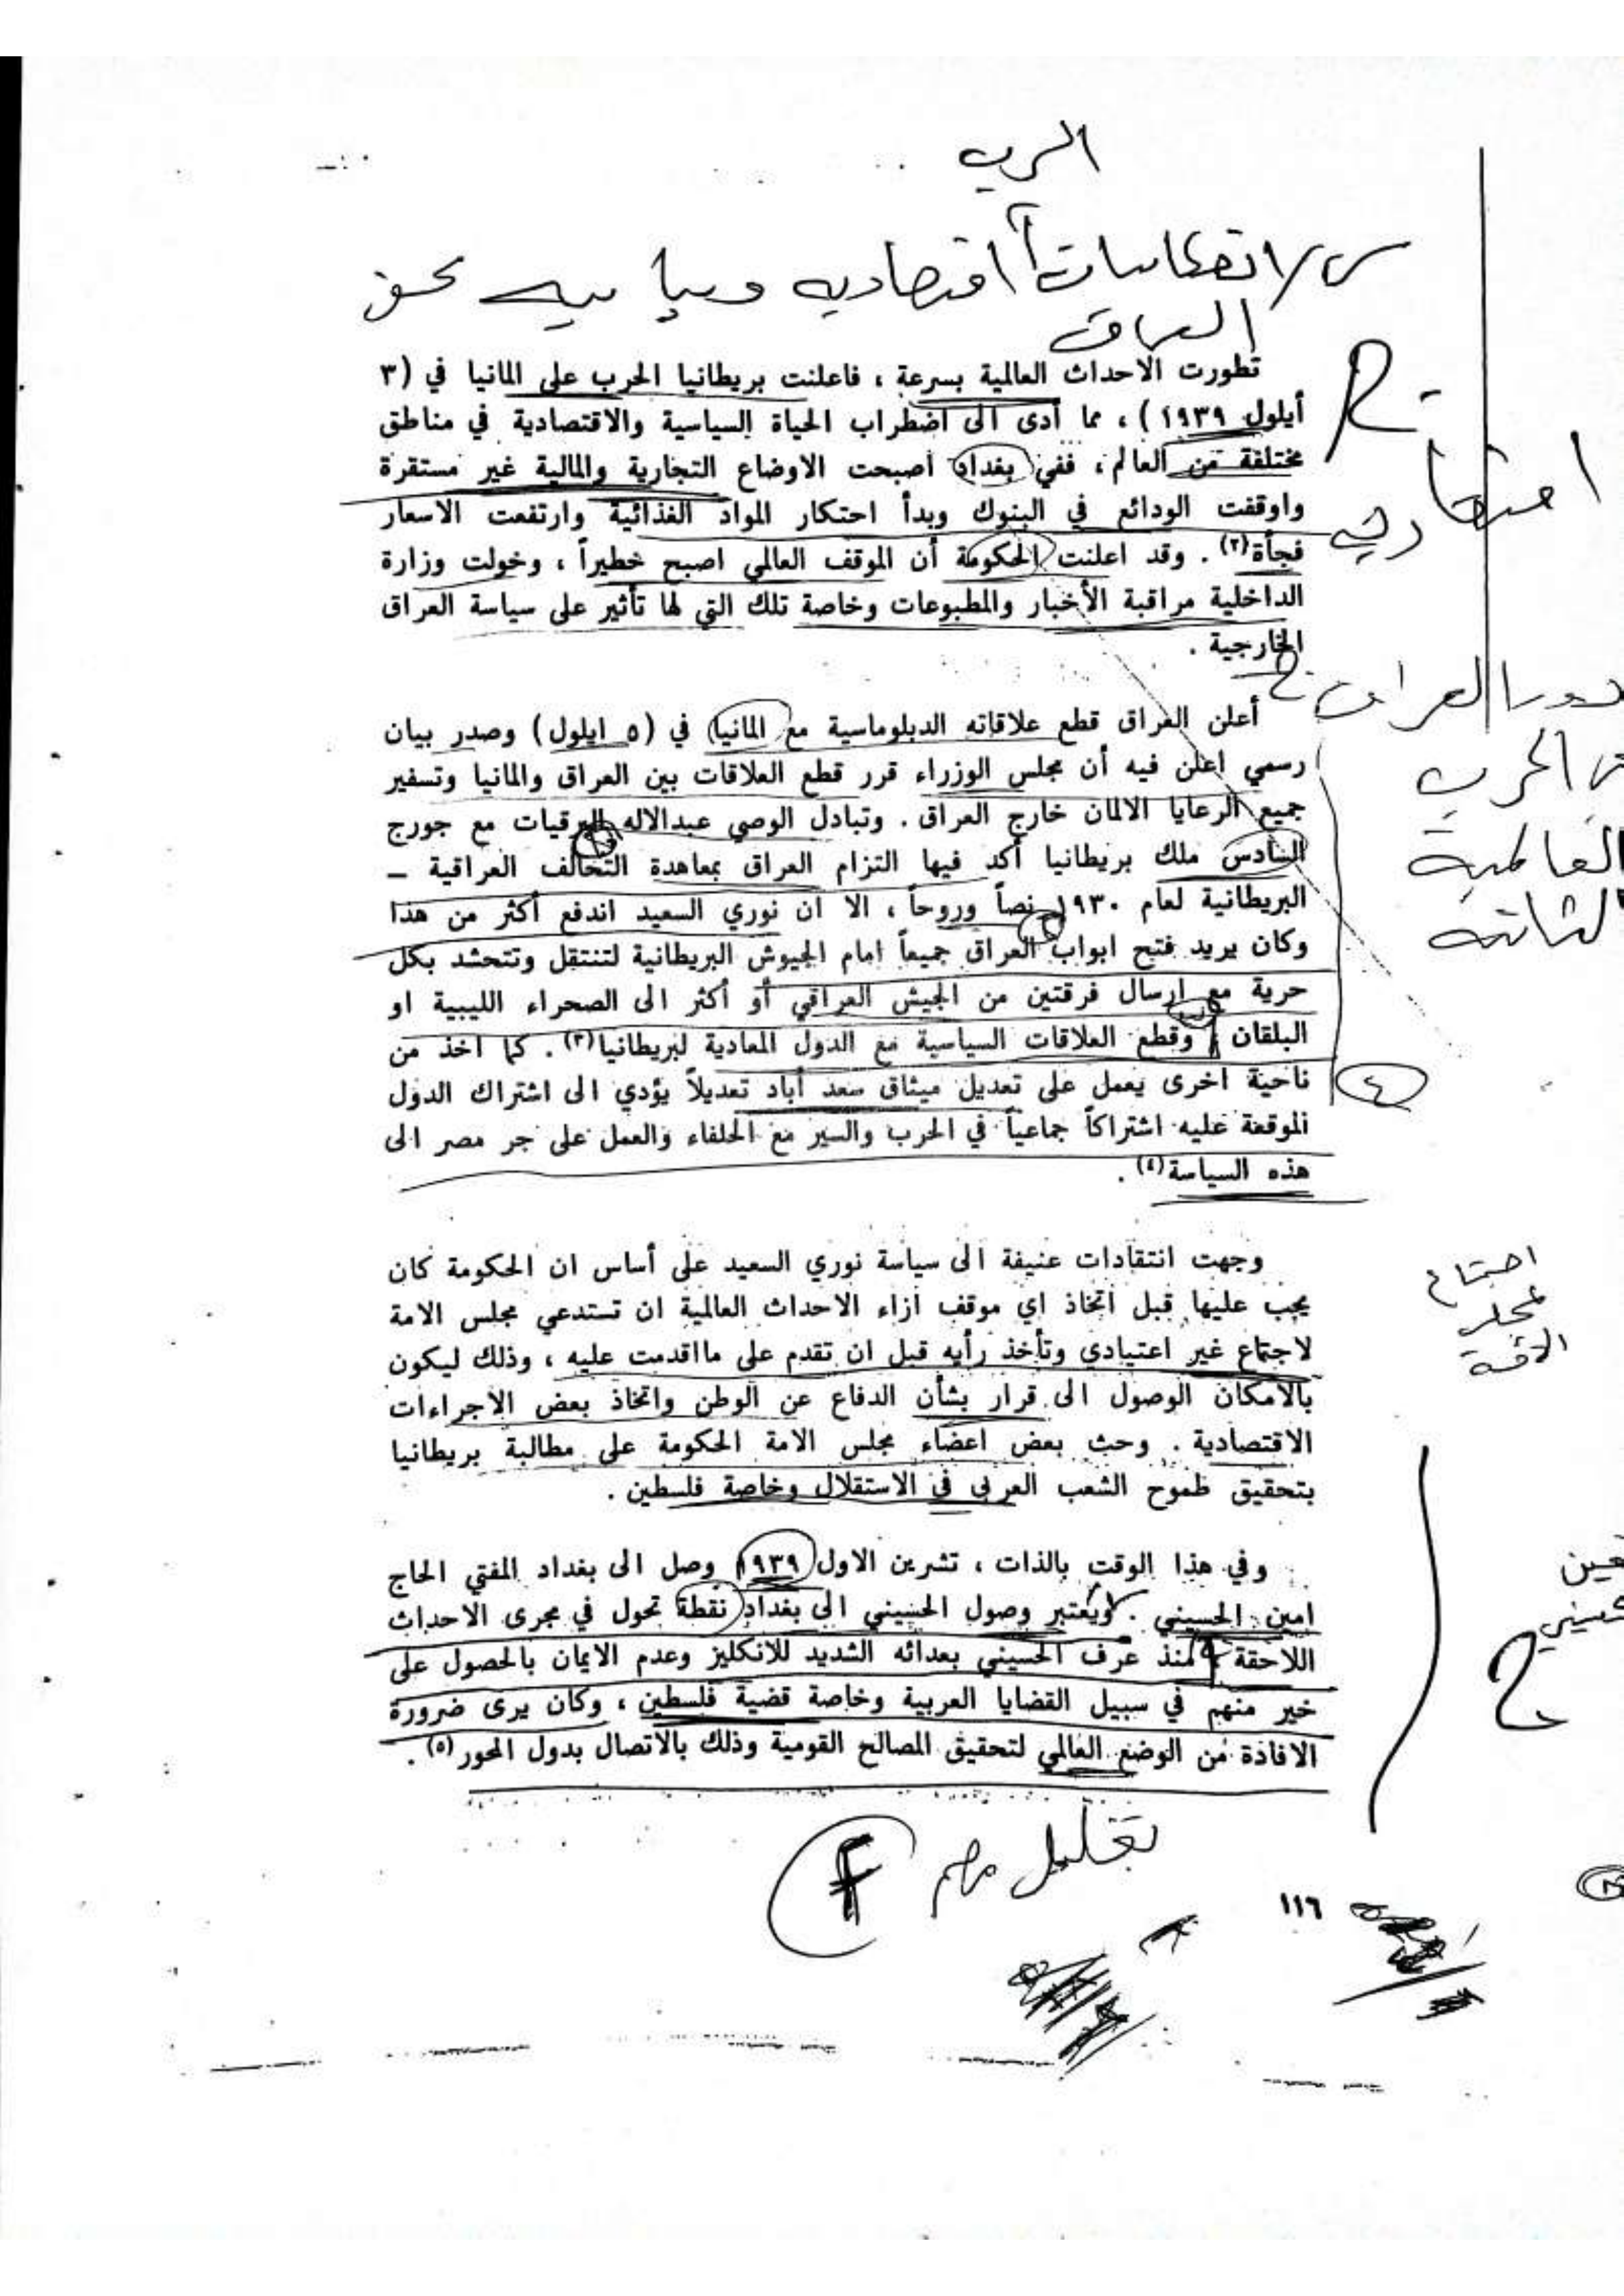 الحرب
س/ انعكاسات اقتصادية وسياسية بحق
العراق
تطورت الاحداث العالمية بسرعة ، فاعلنت بريطانيا الحرب على المانيا في (٣
أيلول ١٩٣٩) ، مما أدى الى اضطراب الحياة السياسية والاقتصادية في مناطق
مختلفة من العالم ، ففي بغداد اصبحت الاوضاع التجارية والمالية غير مستقرة
واوقفت الودائع في البنوك وبدأ احتكار المواد الغذائية وارتفعت الاسعار
فجأة(٢) . وقد اعلنت الحكومة أن الموقف العالمي اصبح خطيراً ، وخولت وزارة
الداخلية مراقبة الأخبار والمطبوعات وخاصة تلك التي لها تأثير على سياسة العراق
الخارجية .
ج
اقتصادية
دور العراق
الحرب
العالمية
الثانية
أعلن العراق قطع علاقاته الدبلوماسية مع المانيا في (٥ ايلول) وصدر بيان
رسمي اعلن فيه أن مجلس الوزراء قرر قطع العلاقات بين العراق والمانيا وتسفير
جميع الرعايا الالمان خارج العراق . وتبادل الوصي عبدالاله البرقيات مع جورج
السادس ملك بريطانيا أكد فيها التزام العراق بمعاهدة التحالف العراقية –
البريطانية لعام ١٩٣٠ نصاً وروحاً ، الا ان نوري السعيد اندفع أكثر من هذا
وكان يريد فتح ابواب العراق جميعاً امام الجيوش البريطانية لتنتقل وتتحشد بكل
حرية مع ارسال فرقتين من الجيش العراقي أو أكثر الى الصحراء الليبية او
البلقان وقطع العلاقات السياسية مع الدول المعادية لبريطانيا(٣) . كما اخذ من
ناحية اخرى يعمل على تعديل ميثاق سعد أباد تعديلاً يؤدي الى اشتراك الدول
الموقعة عليه اشتراكاً جماعياً في الحرب والسير مع الحلفاء والعمل على جر مصر الى
هذه السياسة(٤) .
٤
وجهت انتقادات عنيفة الى سياسة نوري السعيد على أساس ان الحكومة كان
يجب عليها قبل اتخاذ اي موقف ازاء الاحداث العالمية ان تستدعي مجلس الامة
لاجتماع غير اعتيادي وتأخذ رأيه قبل ان تقدم على مااقدمت عليه ، وذلك ليكون
بالامكان الوصول الى قرار بشأن الدفاع عن الوطن واتخاذ بعض الاجراءات
الاقتصادية . وحث بعض اعضاء مجلس الامة الحكومة على مطالبة بريطانيا
بتحقيق طموح الشعب العربي في الاستقلال وخاصة فلسطين .
اجتماع
مجلس
الامة
وفي هذا الوقت بالذات ، تشرين الاول ١٩٣٩ وصل الى بغداد المفتي الحاج
امين الحسيني . ويعتبر وصول الحسيني الى بغداد نقطة تحول في مجرى الاحداث
اللاحقة منذ عرف الحسيني بعدائه الشديد للانكليز وعدم الايمان بالحصول على
خير منهم في سبيل القضايا العربية وخاصة قضية فلسطين ، وكان يرى ضرورة
الافادة من الوضع العالمي لتحقيق المصالح القومية وذلك بالاتصال بدول المحور(٥) .
ح
تعليل مهم
١١٦